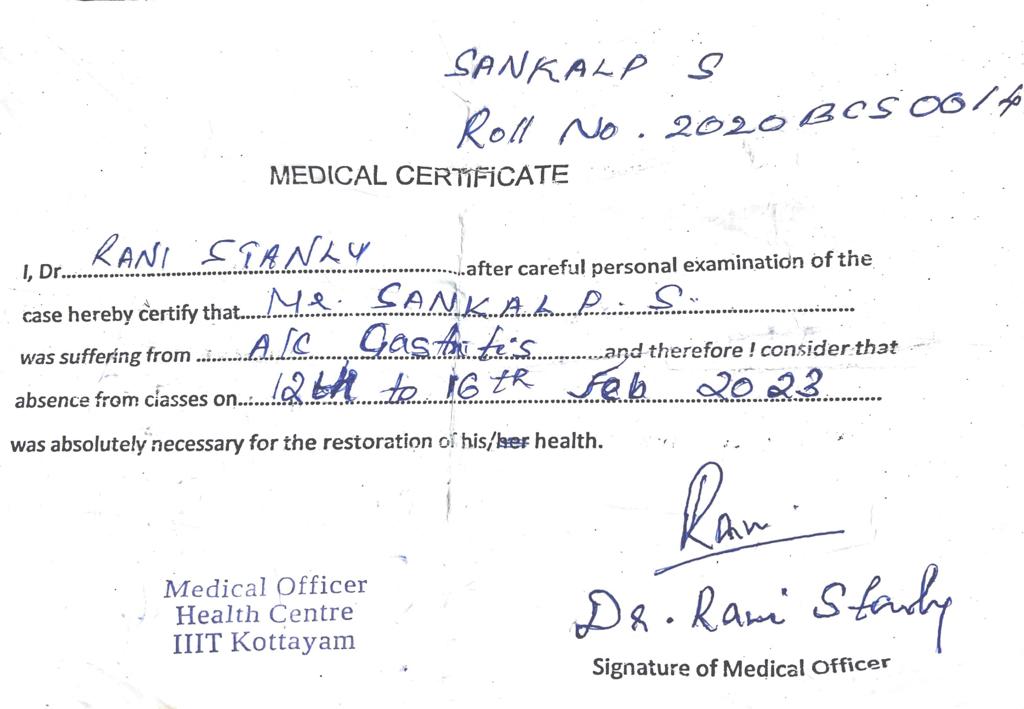 SANKALP S
Roll No. 2020BCS0014
MEDICAL CERTIFICATE
I, Dr....RANI STANLY....after careful personal examination of the
case hereby certify that....Mr. SANKALP. S....
was suffering from ....A/C Gastritis....and therefore I consider that
absence from classes on....12th to 16th Feb 2023....
was absolutely necessary for the restoration of his/her health.
Rani
Dr. Rani Stanly
Medical Officer
Health Centre
IIIT Kottayam
Signature of Medical Officer